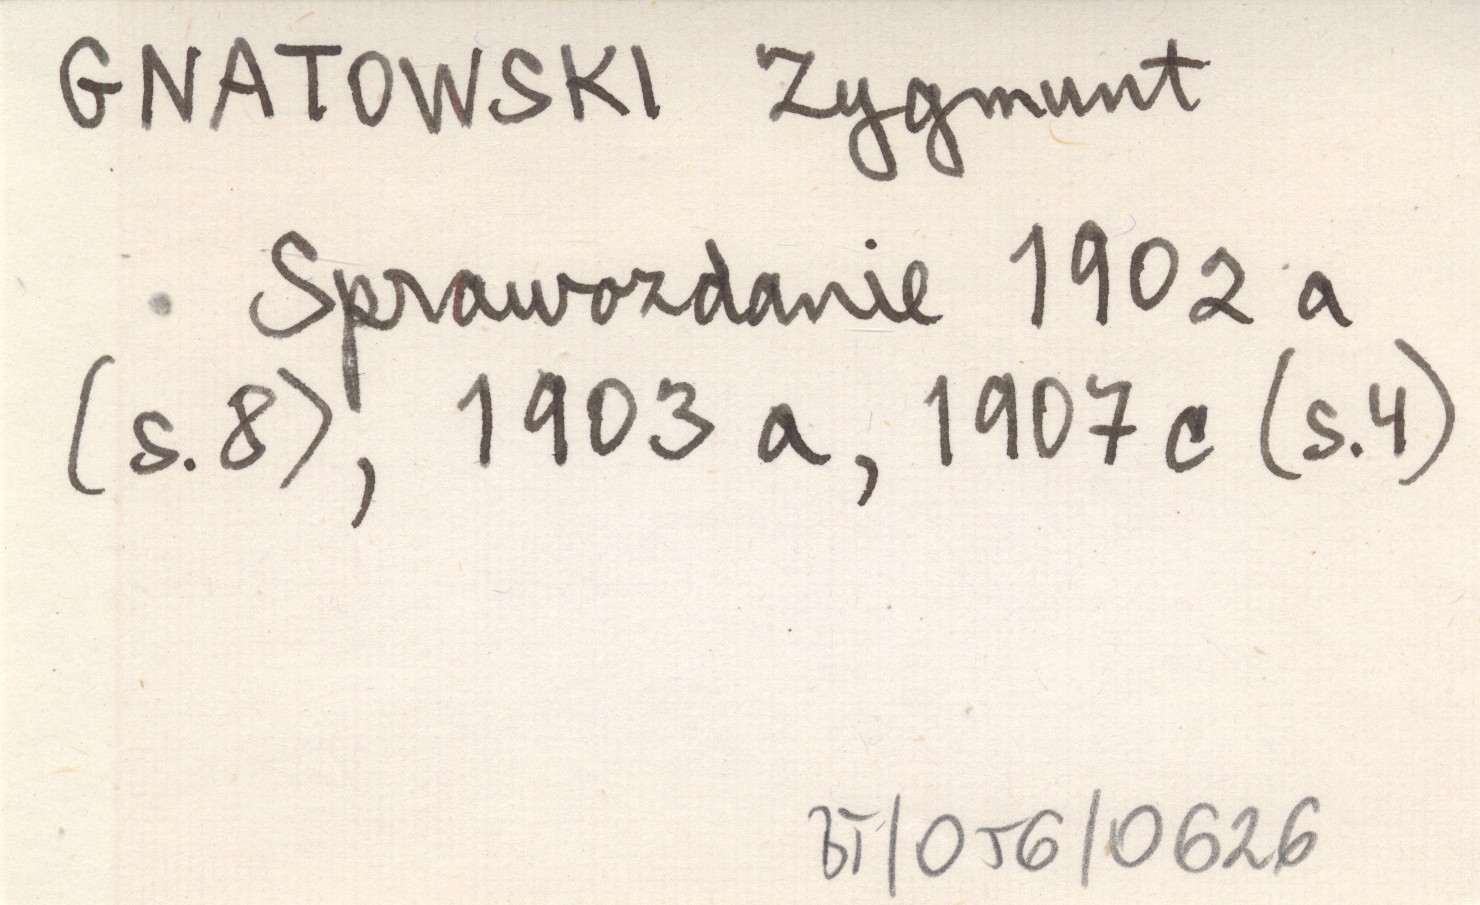 GNATOWSKI Zygmunt
Sprawozdanie 1902 a
(s.8), 1903 a, 1907 c (s.4)
/056/0626